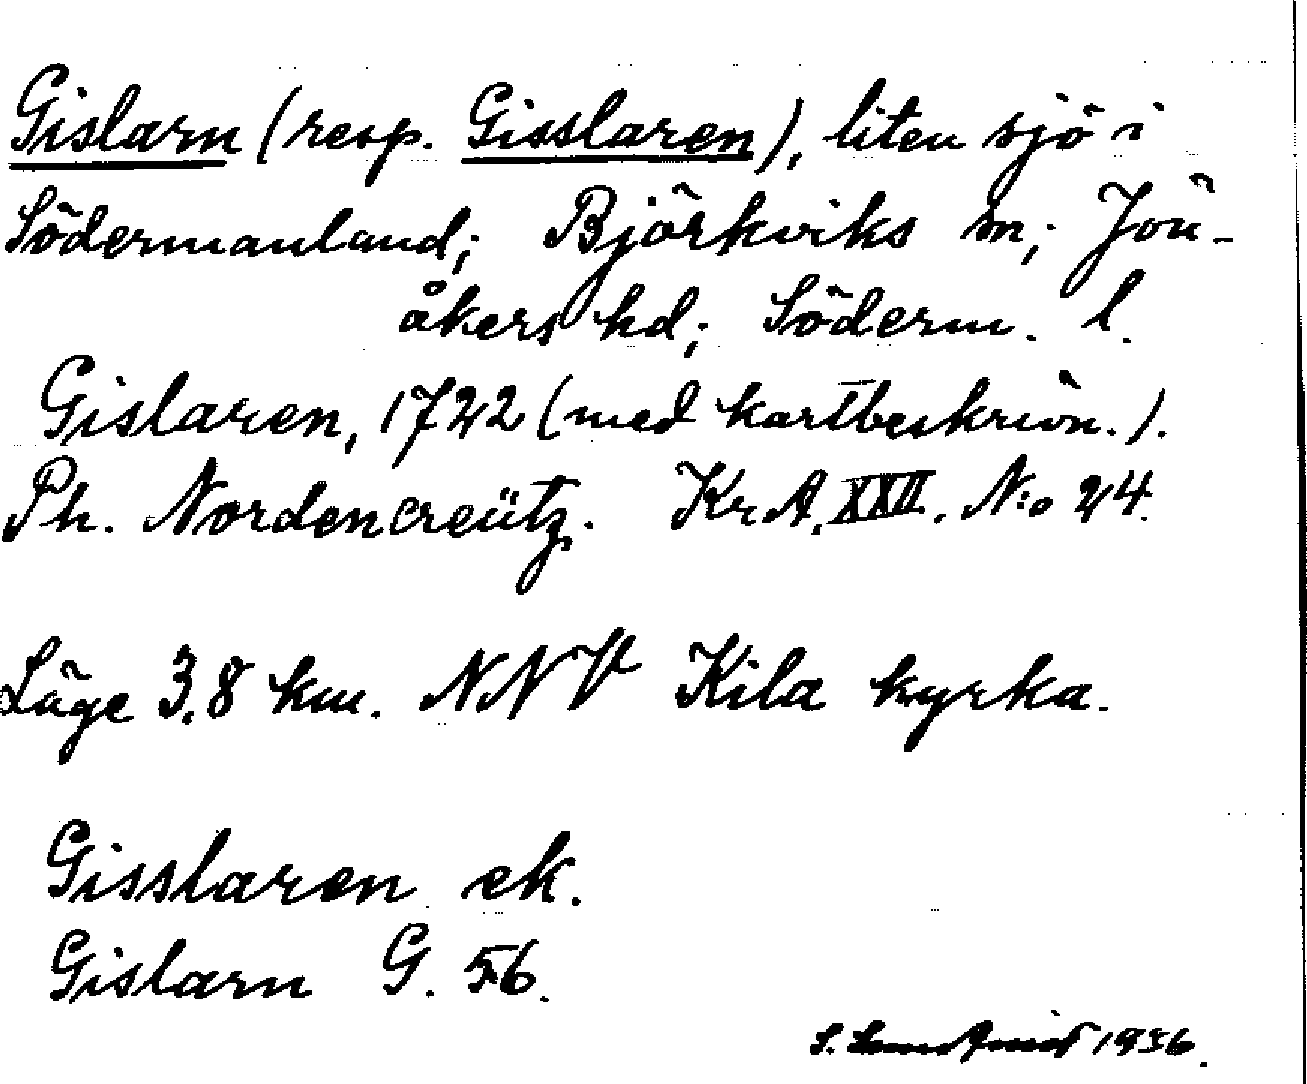 Gislarn (resp. Gisslaren), liten sjö i
Södermanland; Björkviks sn; Jön-
åkers hd; Söderm. l.
Gislaren, 1722 (med kartbeskrivn.).
Ph. Nordencreütz. Kr.A. XXII. N:o 24.
Läge 3,8 km. NNV Kila kyrka.
Gisslaren ek.
Gislarn G. 56.
S. 1936.